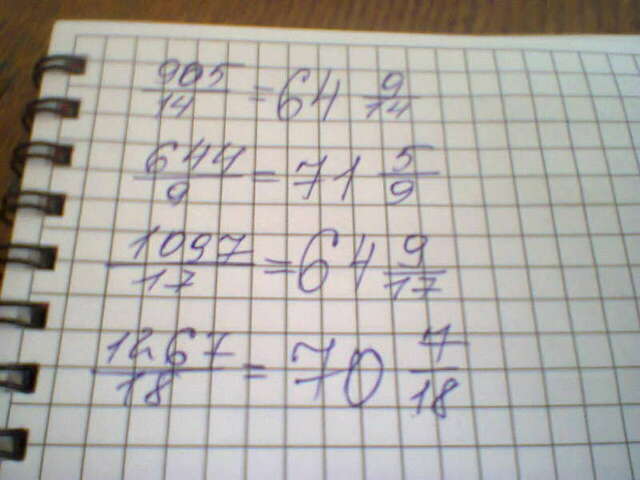 905/14 = 64 9/14
644/9 = 71 5/9
1097/17 = 64 9/17
1267/18 = 70 7/18